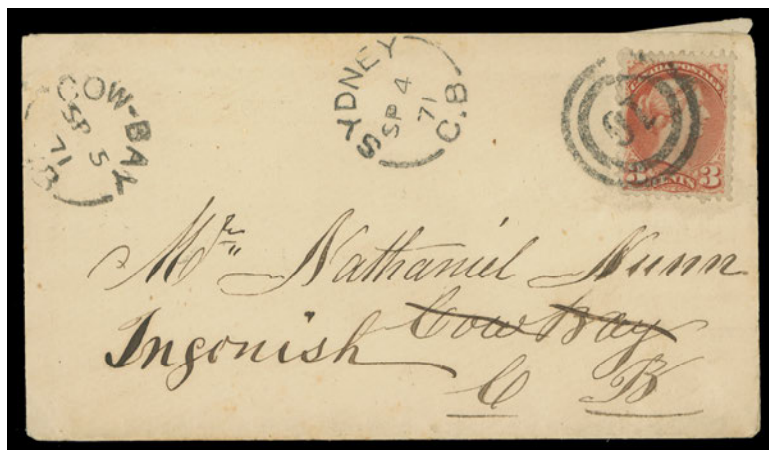 SYDNEY
SP 4
71
C.B
COW-BAY
SP 5
71
CANADA POSTAGE
3 CENTS 3
Mr. Nathaniel Nunn
Ingonish Cow Bay
C B